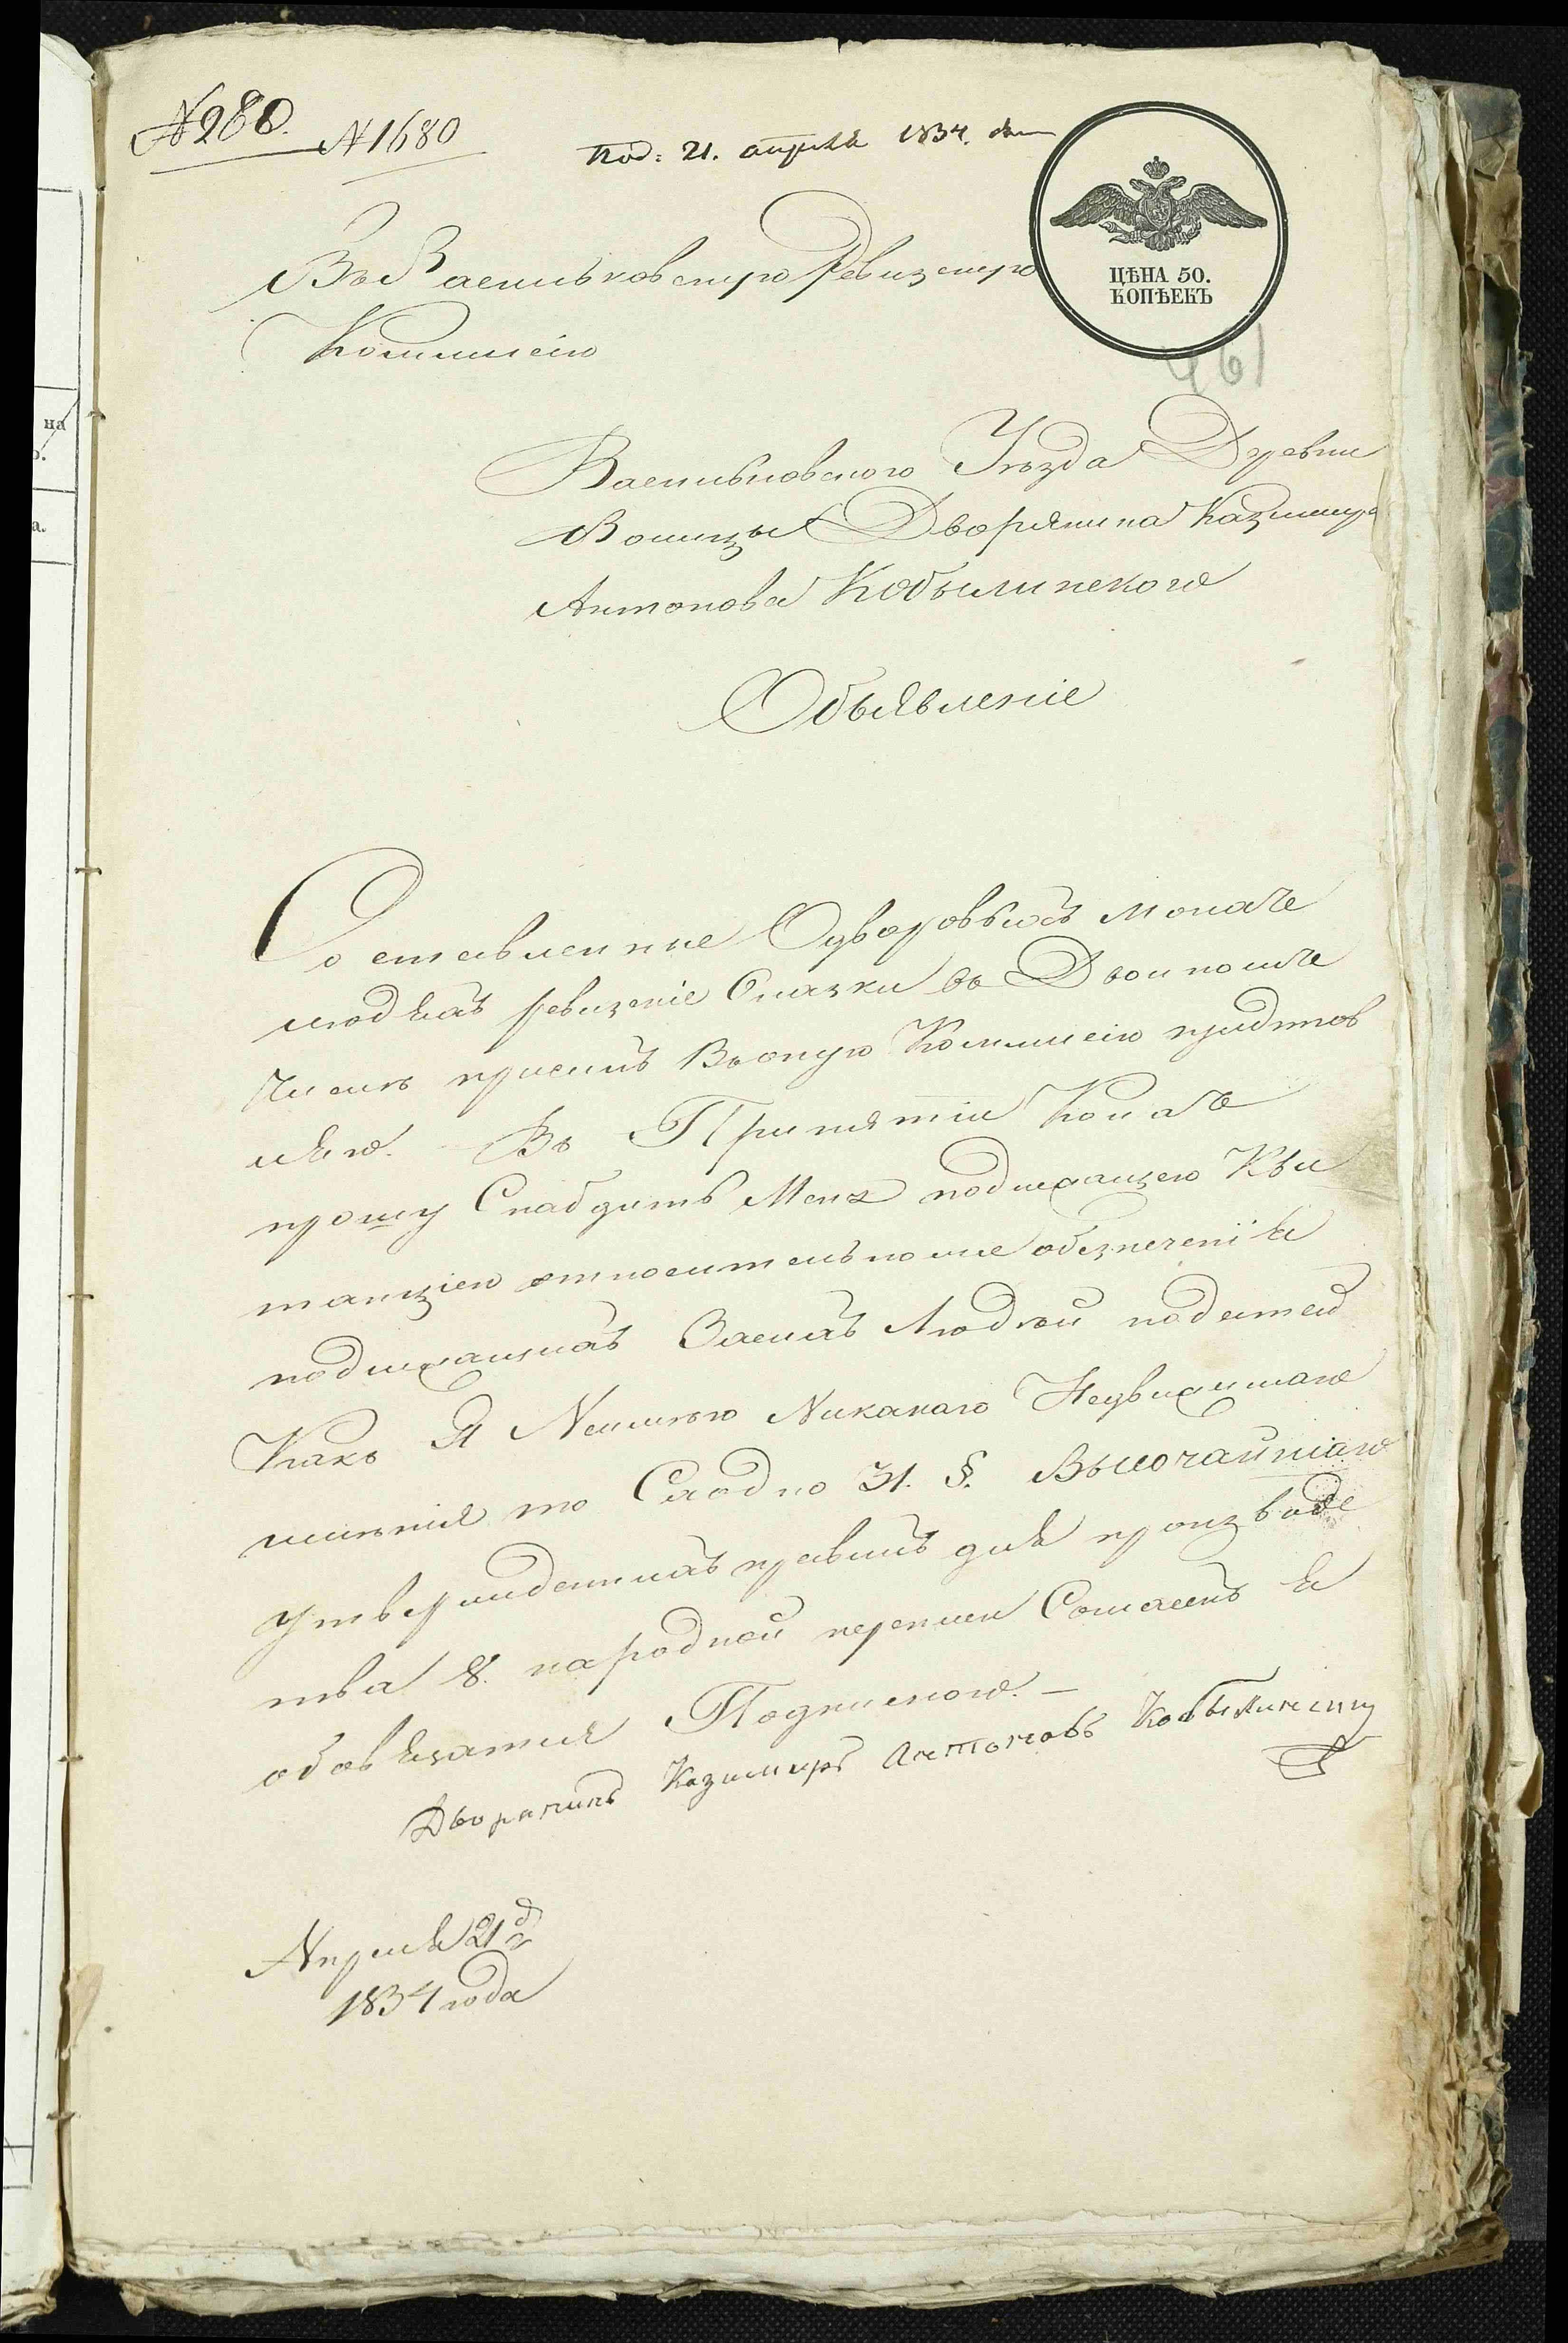 № 280.
№ 1680
Под: 21. апреля 1834. дня
ЦѢНА 50.
КОПѢЕКЪ
461
Въ Васильковскую Ревизскую
Коммисію
Васильковского Уѣзда Деревни
Волицы Дворянина Казимира
Антонова Кобылинского
Объявленіе
Составленные Одворовыхъ моихъ
людяхъ ревизскіе Сказки въ Двойномъ
Числѣ присемъ Въоную Коммисію представ
ляю. Въ Принятіи Коихъ
прошу Снабдить Меня подлежащею Кви
танціею относительноже обезпеченія
подлежащихъ Засихъ Людей податей
Какъ Я Неимѣю Никакаго Недвижимаго
имѣнія то Сходно 31. §. Высочайшаго
утвержденныхъ правилъ для производс
тва 8. народной переписи Согласенъ я
обовязатся Подпискою. —
Дворянинъ Казимиръ Антоновъ Кобылинскiй
Апреля 21 д
1834 года
на
о.
а.